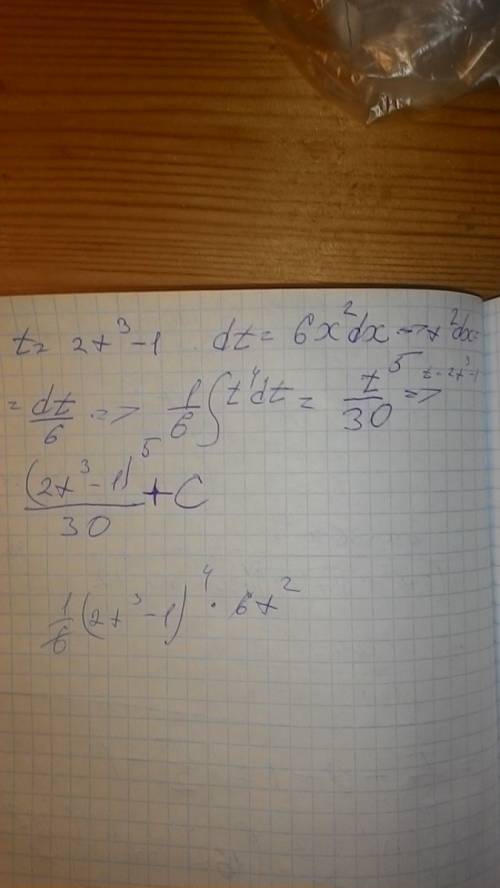 t = 2x³-1 dt = 6x²dx => x²dx =
= dt/6 => 1/6 ∫ t⁴dt = t⁵/30 t=2x³-1 =>
(2x³-1)⁵/30 + C
1/6 (2x³-1)⁴ · 6x²